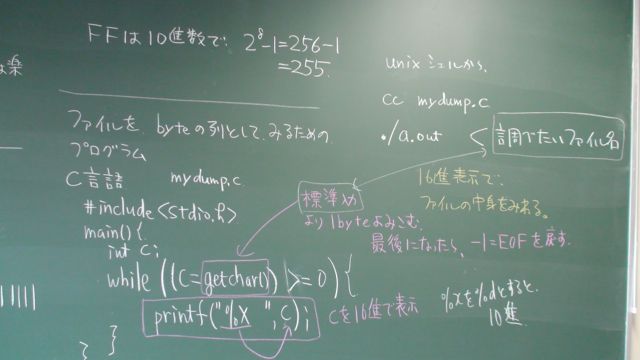 FFは10進数で: 2⁸-1=256-1
=255.
は楽
ファイルを byteの列として、みるための
プログラム
C言語 mydump.c
#include<stdio.h>
main(){
int c;
while ((c=getchar()) >=0){
printf("%X ",c);
}
}
unixシェルから、
cc mydump.c
./a.out < 調べたいファイル名
16進表示で:
ファイルの中身をみれる。
標準入力
より1byteよみこむ.
最後になったら、-1=EOFを戻す.
cを16進で表示
%xを%dとすると、
10進